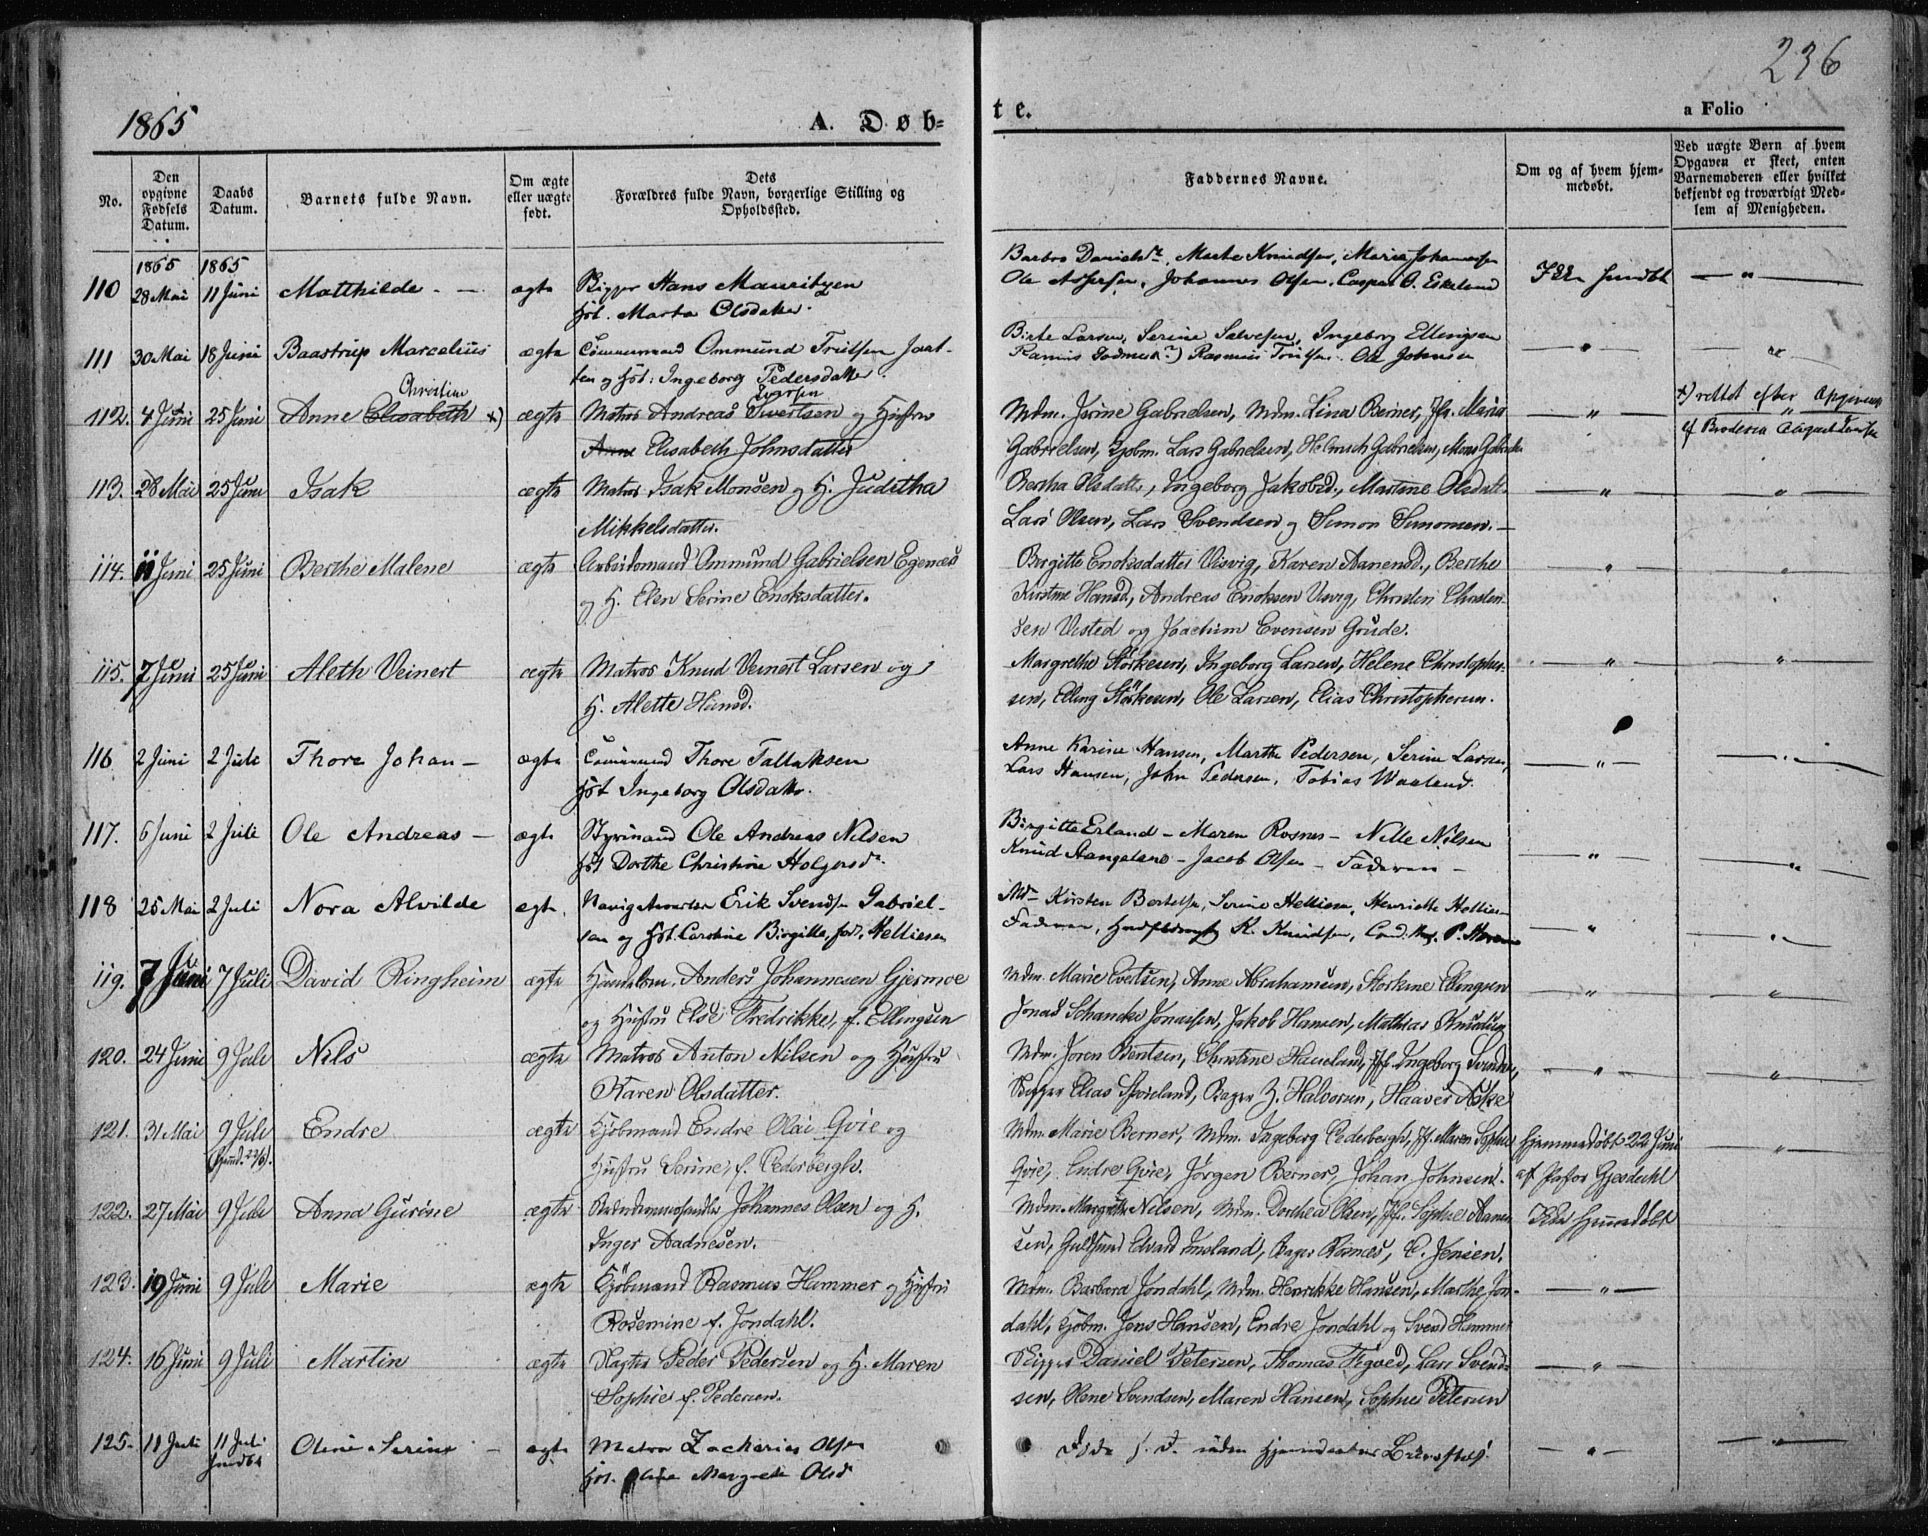 236
1865
A. Døb=
te.
a Folio
No.
Den opgivne Fødsels Datum.
Daabs Datum.
Barnets fulde Navn.
Om ægte eller uægte født.
Dets Forældres fulde Navn, borgerlige Stilling og Opholdssted.
Faddernes Navne.
Om og af hvem hjemmedøbt.
Ved uægte Børn af hvem Opgaven er skeet, enten Barnemoderen eller hvilket bekjendt og troværdigt Medlem af Menigheden.
1865 1865
110 28 Mai 11 Juni Matthilde - - ægte Rigger Hans Mauritzen
Hst. Marta Olsdatter.
Marte Knudsen, Maria Johannesen
Johannes Olsen, Caspar O. Eskeland
111 30 Mai 18 Juni Baastrup Marcelius ægte Ommund
og Hst: Ingeborg Pedersdatter.
Birte Larsen, Serine Salvesen, Ingeborg Ellingsen
Rasmus Ole Johnsen
112. 4 Juni 25 Juni Anne Elisabeth Christine x) ægte Matros Andreas Sivertsen Iversen og Hustru
Anne Elisabeth Johnsdatter
Mdm. Serine Gabrielsen, Mdm. Lina Berner, Jfr. Maria
Gabrielsen, Kjøbm. Lars Gabrielsen, Helmich Gabrielsen, Mons Gabrielsen
x) rettet efter Opgivende
af Broderen
113. 28 Mai 25 Juni Isak ægte Matros Isak Monsen og H. Juditha
Mikkelsdatter.
Bertha Olsdatter, Ingeborg Jakobsd., Martine Olsdatt.
Lars Olsen, Lars Svendsen og Simon Simonsen.
114. 11 Juni 25 Juni Berthe Malene ægte Arbeidsmand Ommund Gabrielsen Egenæs
og H. Elen Serine Enoksdatter.
Birgitte Enoksdatter Visvig, Karen Aanensd., Berthe
Kirstine Hansd, Andreas Enoksen Visvig, Christen Christen-
sen Vested og Joachim Evensen Grude.
115. 7 Juni 25 Juni Aleth Veinert ægte Matros Knud Veinert Larsen og
H. Alette Hansd.
Margrethe Störkesen, Ingeborg Larsen, Helene Christopher-
sen, Elling Störkesen, Ole Larsen, Elias Christophersen.
116 2 Juni 2 Juli Thore Johan - ægte Thore Tallaksen
Hst Ingeborg Olsdatter.
Anne Karine Hansen, Marthe Pedersen, Serine Larsen,
Lars Hansen, John Pedersen, Tobias Waaland.
117. 6 Juni 2 Juli Ole Andreas - ægte Styrmand Ole Andreas Nilsen
Hst Dorthe Christine Holgersdr.
Birgitte Erland - Maren Rosnes - Nille Nilsen
Knud Aangeland - Jacob Olsen - Faderen -
118 25 Mai 2 Juli Nora Alvilde ægte. Erik Svendsen Gabriel-
sen og Hst. Caroline Birgitte, fød. Helliesen
Kirsten Bertelsen, Serine Helliesen, Henriette Helliesen
Faderen, K. Knudsen,
119. 7 Juni 7 Juli David Ringheim ægte Anders Johannesen Gjermoe
og Hustru Else Fredrikke, f. Ellingsen
Mdm. Marie Evertsen, Anne Abrahamsen, Storkine Ellingsen
Jonas Schancke Jonassen, Jakob Hansen, Mathias Knudsen
120. 24 Juni 9 Juli Nils ægte Matros Anton Nilsen og Hustru
Karen Olsdatter.
Mdm. Joren Bentsen, Christine Haueland, Jfr. Ingeborg Svendsen,
Skipper Elias Skjveland, Bager Z. Halvorsen, Haaver Aske
121. 31 Mai 9 Juli Endre ægte Kjöbmand Endre Olai Qvie og
(hjmd. 22/6).
Hustru Serine, f. Cederbergh.
Mdm. Marie Berner, Mdm. Ingeborg Cederbergh, Jfr. Maren Sophie
Qvie, Endre Qvie, Jörgen Berner, Johan Johnsen.
Hjemmedøbt 22 Juni
af Pastor Gjesdahl
122. 27 Mai 9 Juli Anna Gurine ægte Johannes Olsen og H.
Inger Aadnesen.
Mdm. Margrethe Nilsen, Mdm. Dorthea Olsen, Jfr. Sophie Aanen-
sen, Guldsmd Edvard Imsland, Bager Rosnæs, C. Jensen.
Ikke hjemmedøbt
123. 19 Juni 9 Juli Marie ægte Kjöbmand Rasmus Hammer og Hustru
Rosemine f. Jondahl.
Mdm. Barbara Jondahl, Mdm. Henrikke Hansen, Marthe Jon-
dahl, Kjöbm. Jens Hansen, Endre Jondahl og Svend Hammer
124. 16 Juni 9 Juli Martin ægte Slagter Peder Pedersen og H. Maren
Sophie f. Pedersen.
Skipper Daniel Petersen, Thomas Tegved, Lars Svend-
sen, Olene Svendsen, Maren Hansen, Sophie Petersen
125. 11 Juli 11 Juli Oline Serine - ægte Matros Zacharias Olsen
Hst. Oline Margrete Olsd